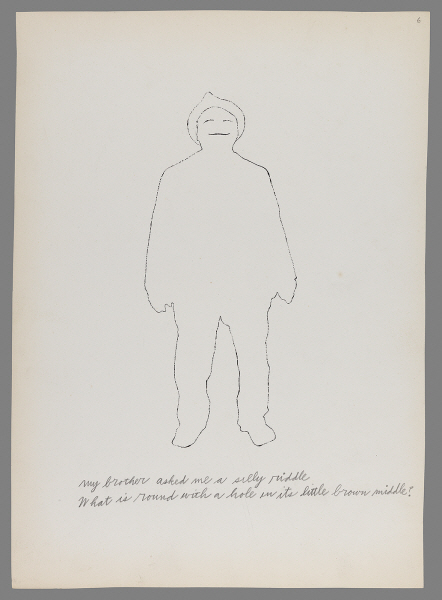 6
my brother asked me a silly riddle
What is round with a hole in its little brown middle?